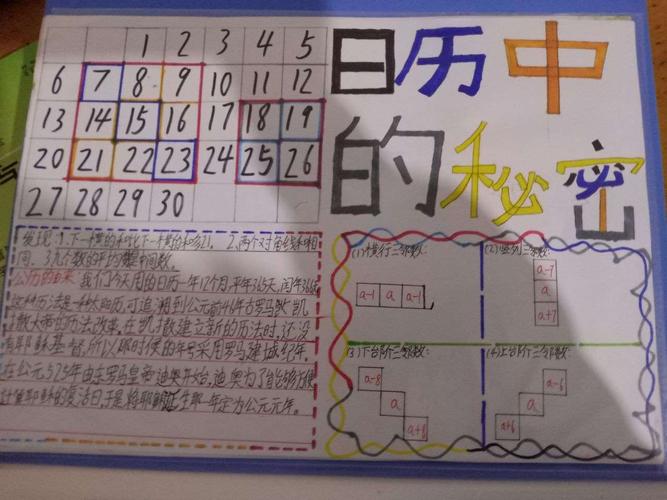 1 2 3 4 5
6 7 8 9 10 11 12
13 14 15 16 17 18 19
20 21 22 23 24 25 26
27 28 29 30
日历中
的秘密
发现:1.下一横的和比下一横的和多21。 2.两个对角线和相
同。3.九个数的平均数是中间数。
公历的由来 我们今天用的日历一年12个月,平年365天,闰年366天
这种历法是一种太阳历,可追溯到公元前46年古罗马 凯
撒大帝的历法改革。在凯撒建立新的历法时,还没
有耶稣基督,所以那时候的年号采用罗马建城纪年。
在公元525年由东罗马皇帝迪奥开始,迪奥为了能够方便
计算耶稣的复活日,于是将耶稣诞生那一年定为公元元年。
(1)横行三邻数:
a-1 a a-1
(2)竖列三邻数:
a-7
a
a+7
(3)下台阶三邻数:
a-8
a
a+8
(4)上台阶三邻数:
a-6
a
a+6